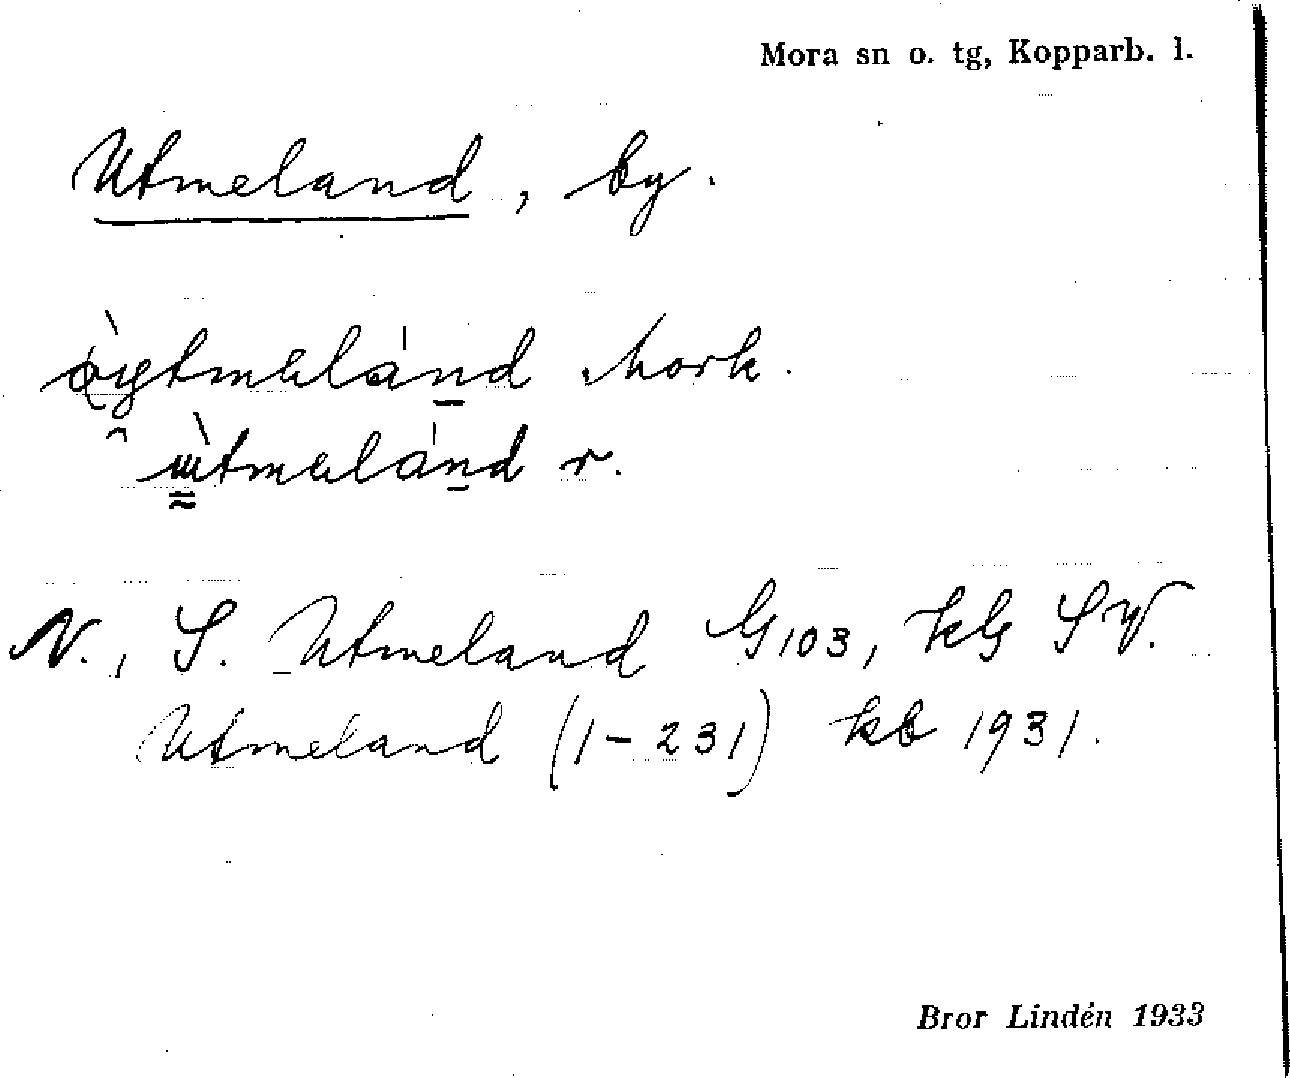 Mora sn o. tg, Kopparb. l.
Utmeland, by.
Mork.
r.
N., S. Utmeland G103, kG SV.
Utmeland (1-231) kb 1931.
Bror Lindén 1933